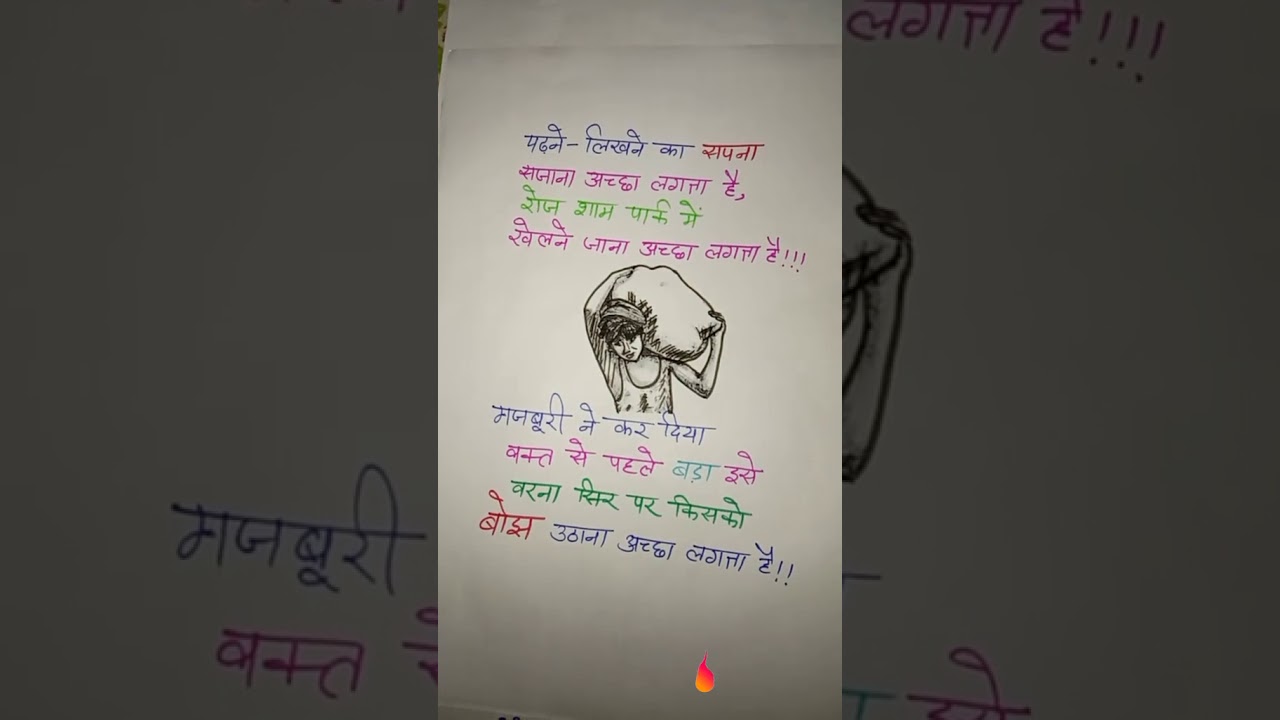 पढ़ने-लिखने का सपना
सजाना अच्छा लगता है,
रोज शाम पार्क में
खेलने जाना अच्छा लगता है!!!
मजबूरी ने कर दिया
वक्त से पहले बड़ा इसे
वरना सिर पर किसको
बोझ उठाना अच्छा लगता है!!